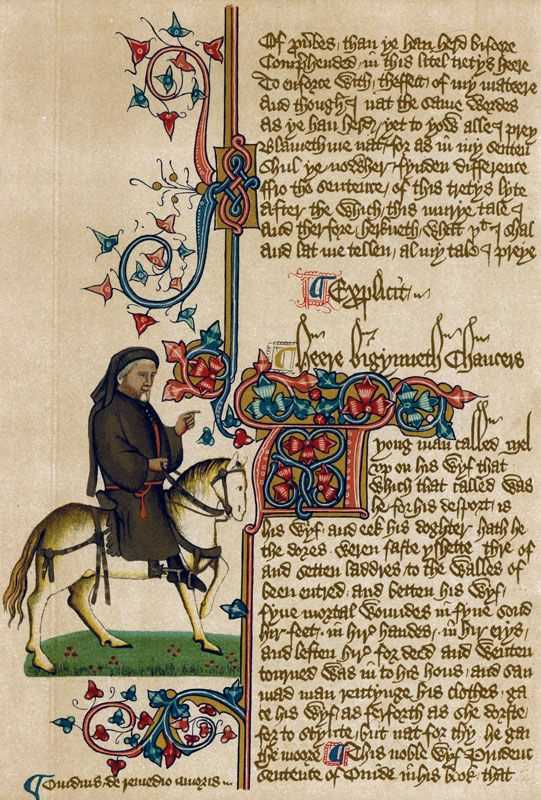 Of prouerbes / than ye han herd bifore
Comprehended / in this litel tretys heere
To enforce with / theffect / of my mateere
And though I / nat the same wordes
As ye han herd / yet to yow alle I preye
Blameth me nat / for as in my sentence
Shul ye nowher / fynden difference
ffro the sentence / of this tretys lyte
After the which / this murye tale I
And therfore / herkneth / what þt I shal
And lat me tellen / al my tale I preye
Explicit
Heere bigynneth Chaucers
A yong man called Mel
vp on his wyf that
which that called was
he for his desport / is
his wyf / and eek his doghter / hath he
the dores weren faste yshette / thre of
and setten laddres / to the walles of
been entred / and betten his wyf /
fyue mortal woundes / in fyue sond
hir feet / in hir handes / in hir erys /
and leften hir for deed / and wenten
torned was in to his hous / and saw
mad man rentynge his clothes / ga
ce his wyf / as ferforth as she dorste /
for to stynte / but nat for thy / he gan
the moore This noble wyf Prudence
sentence of Ouide / in his book / that
Ouidius / de remedio amoris